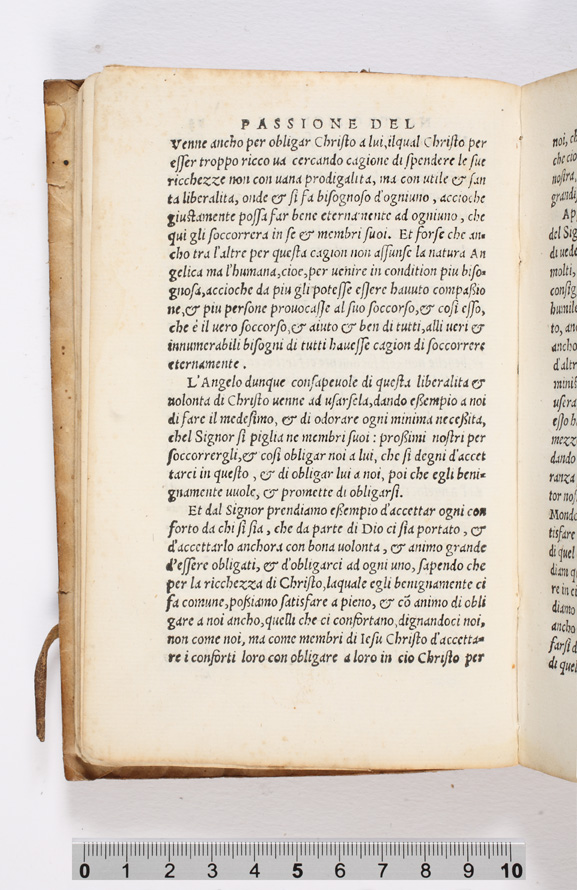 PASSIONE DEL
Venne ancho per obligar Christo a lui, ilqual Christo per
esser troppo ricco ua cercando cagione di spendere le sue
ricchezze non con uana prodigalita, ma con utile & san
ta liberalita, onde & si fa bisognoso d'ogniuno, accioche
giustamente possa far bene eternamente ad ogniuno, che
qui gli soccorrera in se & membri suoi. Et forse che an-
cho tra l'altre per questa cagion non assunse la natura An
gelica ma l'humana, cioe, per uenire in condition piu biso-
gnosa, accioche da piu gli potesse essere hauuto compassio
ne, & piu persone prouocasse al suo soccorso, & cosi esso,
che è il uero soccorso, & aiuto & ben di tutti, alli ueri &
innumerabili bisogni di tutti hauesse cagion di soccorrere
eternamente.
L'Angelo dunque consapeuole di questa liberalita &
uolonta di Christo uenne ad usarsela, dando essempio a noi
di fare il medesimo, & di odorare ogni minima necessita,
chel Signor si piglia ne membri suoi: prossimi nostri per
soccorrergli, & cosi obligar noi a lui, che si degni d'accet
tarci in questo, & di obligar lui a noi, poi che egli beni-
gnamente uuole, & promette di obligarsi.
Et dal Signor prendiamo essempio d'accettar ogni con
forto da chi si sia, che da parte di Dio ci sia portato, &
d'accettarlo anchora con bona uolonta, & animo grande
d'essere obligati, & d'obligarci ad ogni uno, sapendo che
per la ricchezza di Christo, laquale egli benignamente ci
fa comune, possiamo satisfare a pieno, & cõ animo di obli
gare a noi ancho, quelli che ci confortano, dignandoci noi,
non come noi, ma come membri di Iesu Christo d'accetta-
re i conforti loro con obligare a loro in cio Christo per
noi, ch
che cio
nostra,
grandi
Ap
del Sig
di uede
molti,
consig
humile
to, an
ancho
d'altr
minist
usera
esso h
mezz
dando
ranza
tor nos
Mondo
tisfare
di quel
diam q
re in ci
diamo
ancho
farsi d
di quel
0 1 2 3 4 5 6 7 8 9 10